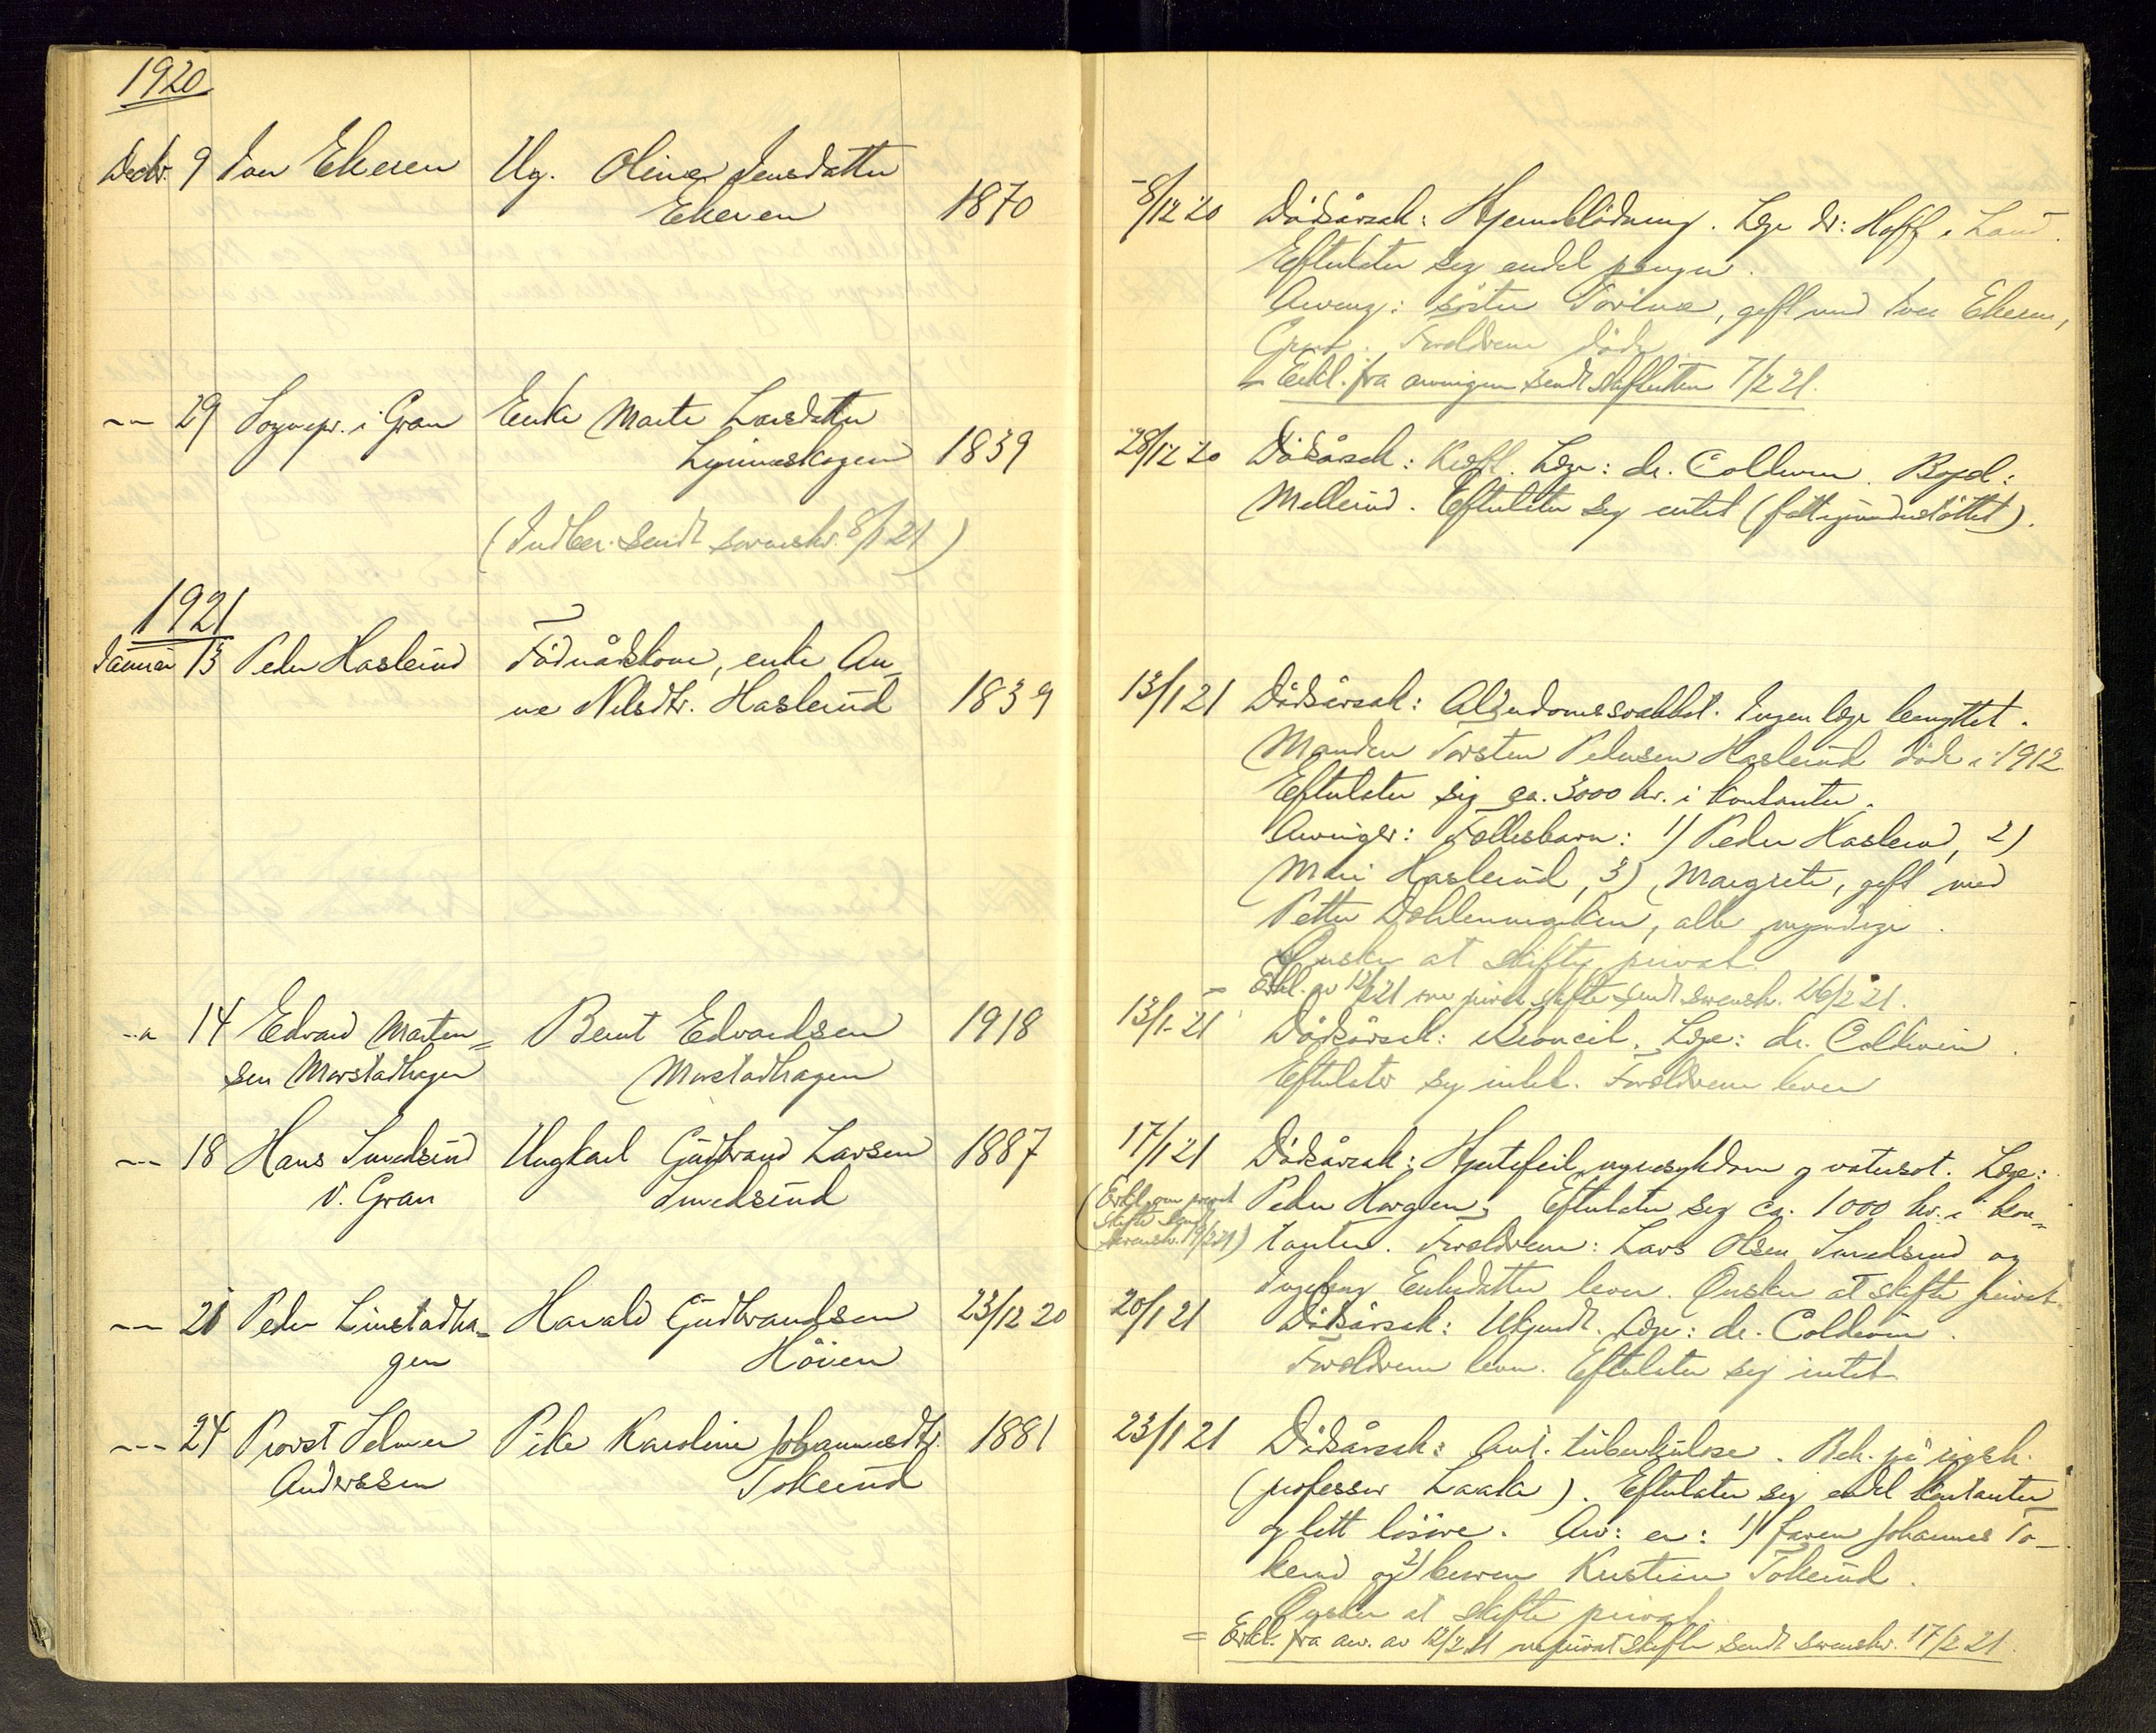 1920
Decbr. 9 Iver Ekeren Ug. Oline Jensdatter
Ekeren 1870
8/12 20 Dödsårsak: Hjerneblödning. Læge dr: Hoff, Land.
Efterlater sig endel penger.
Arving: söster Torine, gift med Iver Ekeren,
Gran. Forældrene döde
= Erkl. fra arvingen sendt skifteretten 7/2 21.
-"- 29 Sognepr. i Gran Enke Marte Larsdatter
Lynneskogen 1839
(Indber. sendt sorenskr. 8/1 21)
28/12 20 Dödsårsak: Kræft. Læge: dr. Coldevin. Bopæl:
Mellerud. Efterlater sig intet (fattigunderstöttet).
1921
Januar 13 Peder Haslerud Födrådskone, enke An-
ne Nilsdtr. Haslerud 1839
13/1 21 Dödsårsak: Alderdomssvakhet. Ingen læge benyttet.
Manden Torsten Pedersen Haslerud döde i 1912
Efterlater sig ca. 3000 kr. i kontanter.
Arvinger: Fællesbarn: 1) Peder Haslerud, 2)
Mari Haslerud, 3) Margrete, gift med
Petter Dæhlenmarken, alle myndige.
Önsker at skifte privat.
= Erkl. av 12/2 21 om privat skifte sendt sorensk. 26/2 21.
-"- 14 Edvard Marten-
sen Morstadhagen Bernt Edvardsen
Morstadhagen 1918
13/1-21 Dödsårsak: Læge: dr. Coldevin.
Efterlater sig intet. Forældrene lever
-"- 18 Hans Smedsrud
v. Gran Ungkarl Gudbrand Larsen
Smedsrud 1887
17/1 21 Dödsårsak: Hjertefeil, nyresykdom og vatersot. Læge:
(Erkl. om privat
skifte sendt
sorenskr. 19/2 21)
Peder Horgen. Efterlater sig ca. 1000 kr. i kon-
tanter. Forældrene: Lars Olsen Smedsrud og
Ingeborg lever. Önsker at skifte privat.
-"- 21 Peder Linstadha-
gen Harald Gudbrandsen
Höien 23/12 20
20/1 21 Dödsårsak: Ukjendt. Læge: dr. Coldevin.
Forældrene lever. Efterlater sig intet
-"- 24 Provst Selmer
Anderssen Pike Karoline Johannesdtr.
Tokerud 1881
23/1 21 Dödsårsak: Ant. tuberkulose. Beh. på rigsh.
(professor Laake). Efterlater sig endel kontanter
og litt lösöre. Arv: er: 1) faren Johannes To-
kerud og 2) broren Kristian Tokerud.
Önsker at skifte privat.
= Erkl. fra arv. av 12/2 21 om privat skifte sendt sorenskr. 17/2 21.